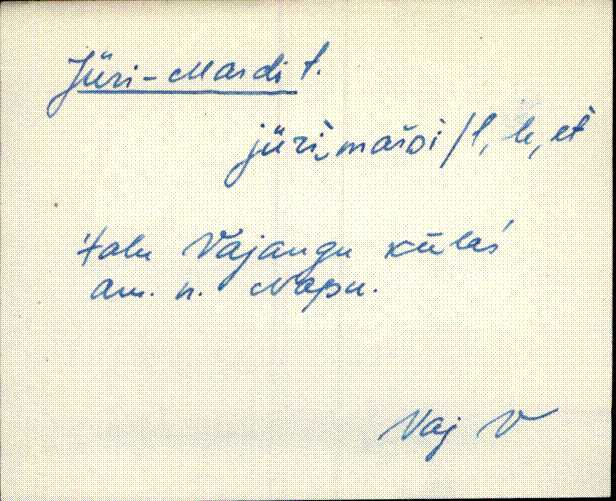 Jüri-Mardi t.
jüri, mar̆di /l, le, et̀
Talu Vajangu külas
am. n. Napu.
Vaj V